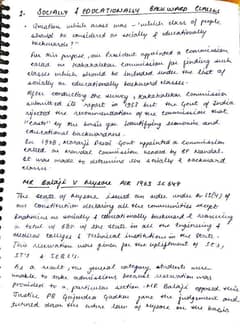 2. SOCIALLY & EDUCATIONALLY BACKWARD CLASSES
- Question which arose was - "which class of people
should be considered as socially & educationally
backwards?"
- For this purpose, our President appointed a commission
called as Kakakalekar Commission for finding such
classes which should be included under the list of
socially or educationally backward classes.
- After conducting the survey, Kakakalekar Commission
submitted its report in but the Govt of India
rejected the recommendation of the Commission that
"caste" be the basis for identifying economic and
educational backwardness.
- In Moraraji Desai Govt appointed a commission
called as Mandal Commission headed by BP Mandal.
It was made to determine the socially & backward
classes.
MR Balaji V Mysore AIR 1963 SC 649
The State of Mysore issued an order under Art 15(4) of
our Constitution declaring all the communities except
Brahmins as socially & educationally backward & reserving
a total of 68% of the seats in all the Engineering &
medical colleges & technical institutions in the State.
This reservation was given for the upliftment of SC's,
ST's & SEBC's.
As a result, the general category students were
unable to take admissions because reservation was
provided to a particular section. MR Balaji opposed this.
Justice PB Gajendra Gadkar gave the judgement and
struck down the order of Mysore on the basis